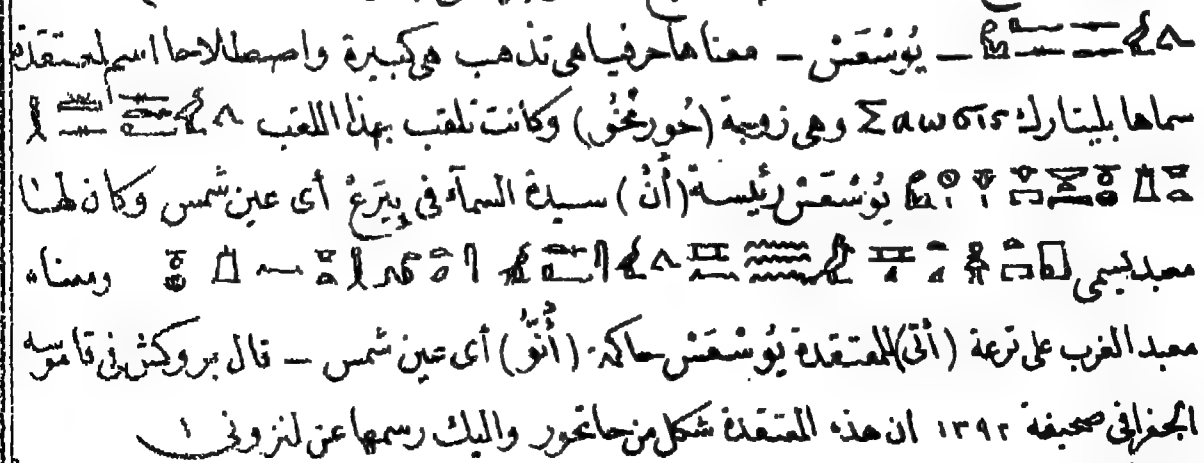 – يُوسْعَسْ – معناها حرفيا هى تذهب هى كبيرة واصطلاحا اسم لمعتقدة
سماها بليتارك Σαωσις وهى زوجة (حور مخو) وكانت تلقب بهذا اللقب
يُوسْعَسْ رئيسة (أُنْ) سيدة السمآء فى بِيَرَعْ أى عين شمس وكان لها
معبد يسمى ومعناه
معبد الغرب على ترعة (أتى) للمعتقدة يُوسْعَسْ حاكمة (أُنُّو) أى عين شمس – قال بروكش فى قاموسه
الجغرافى صحيفة ١٣٩٢ ان هذه المعتقدة شكل من حاتحور واليك رسمها عن لنزونى